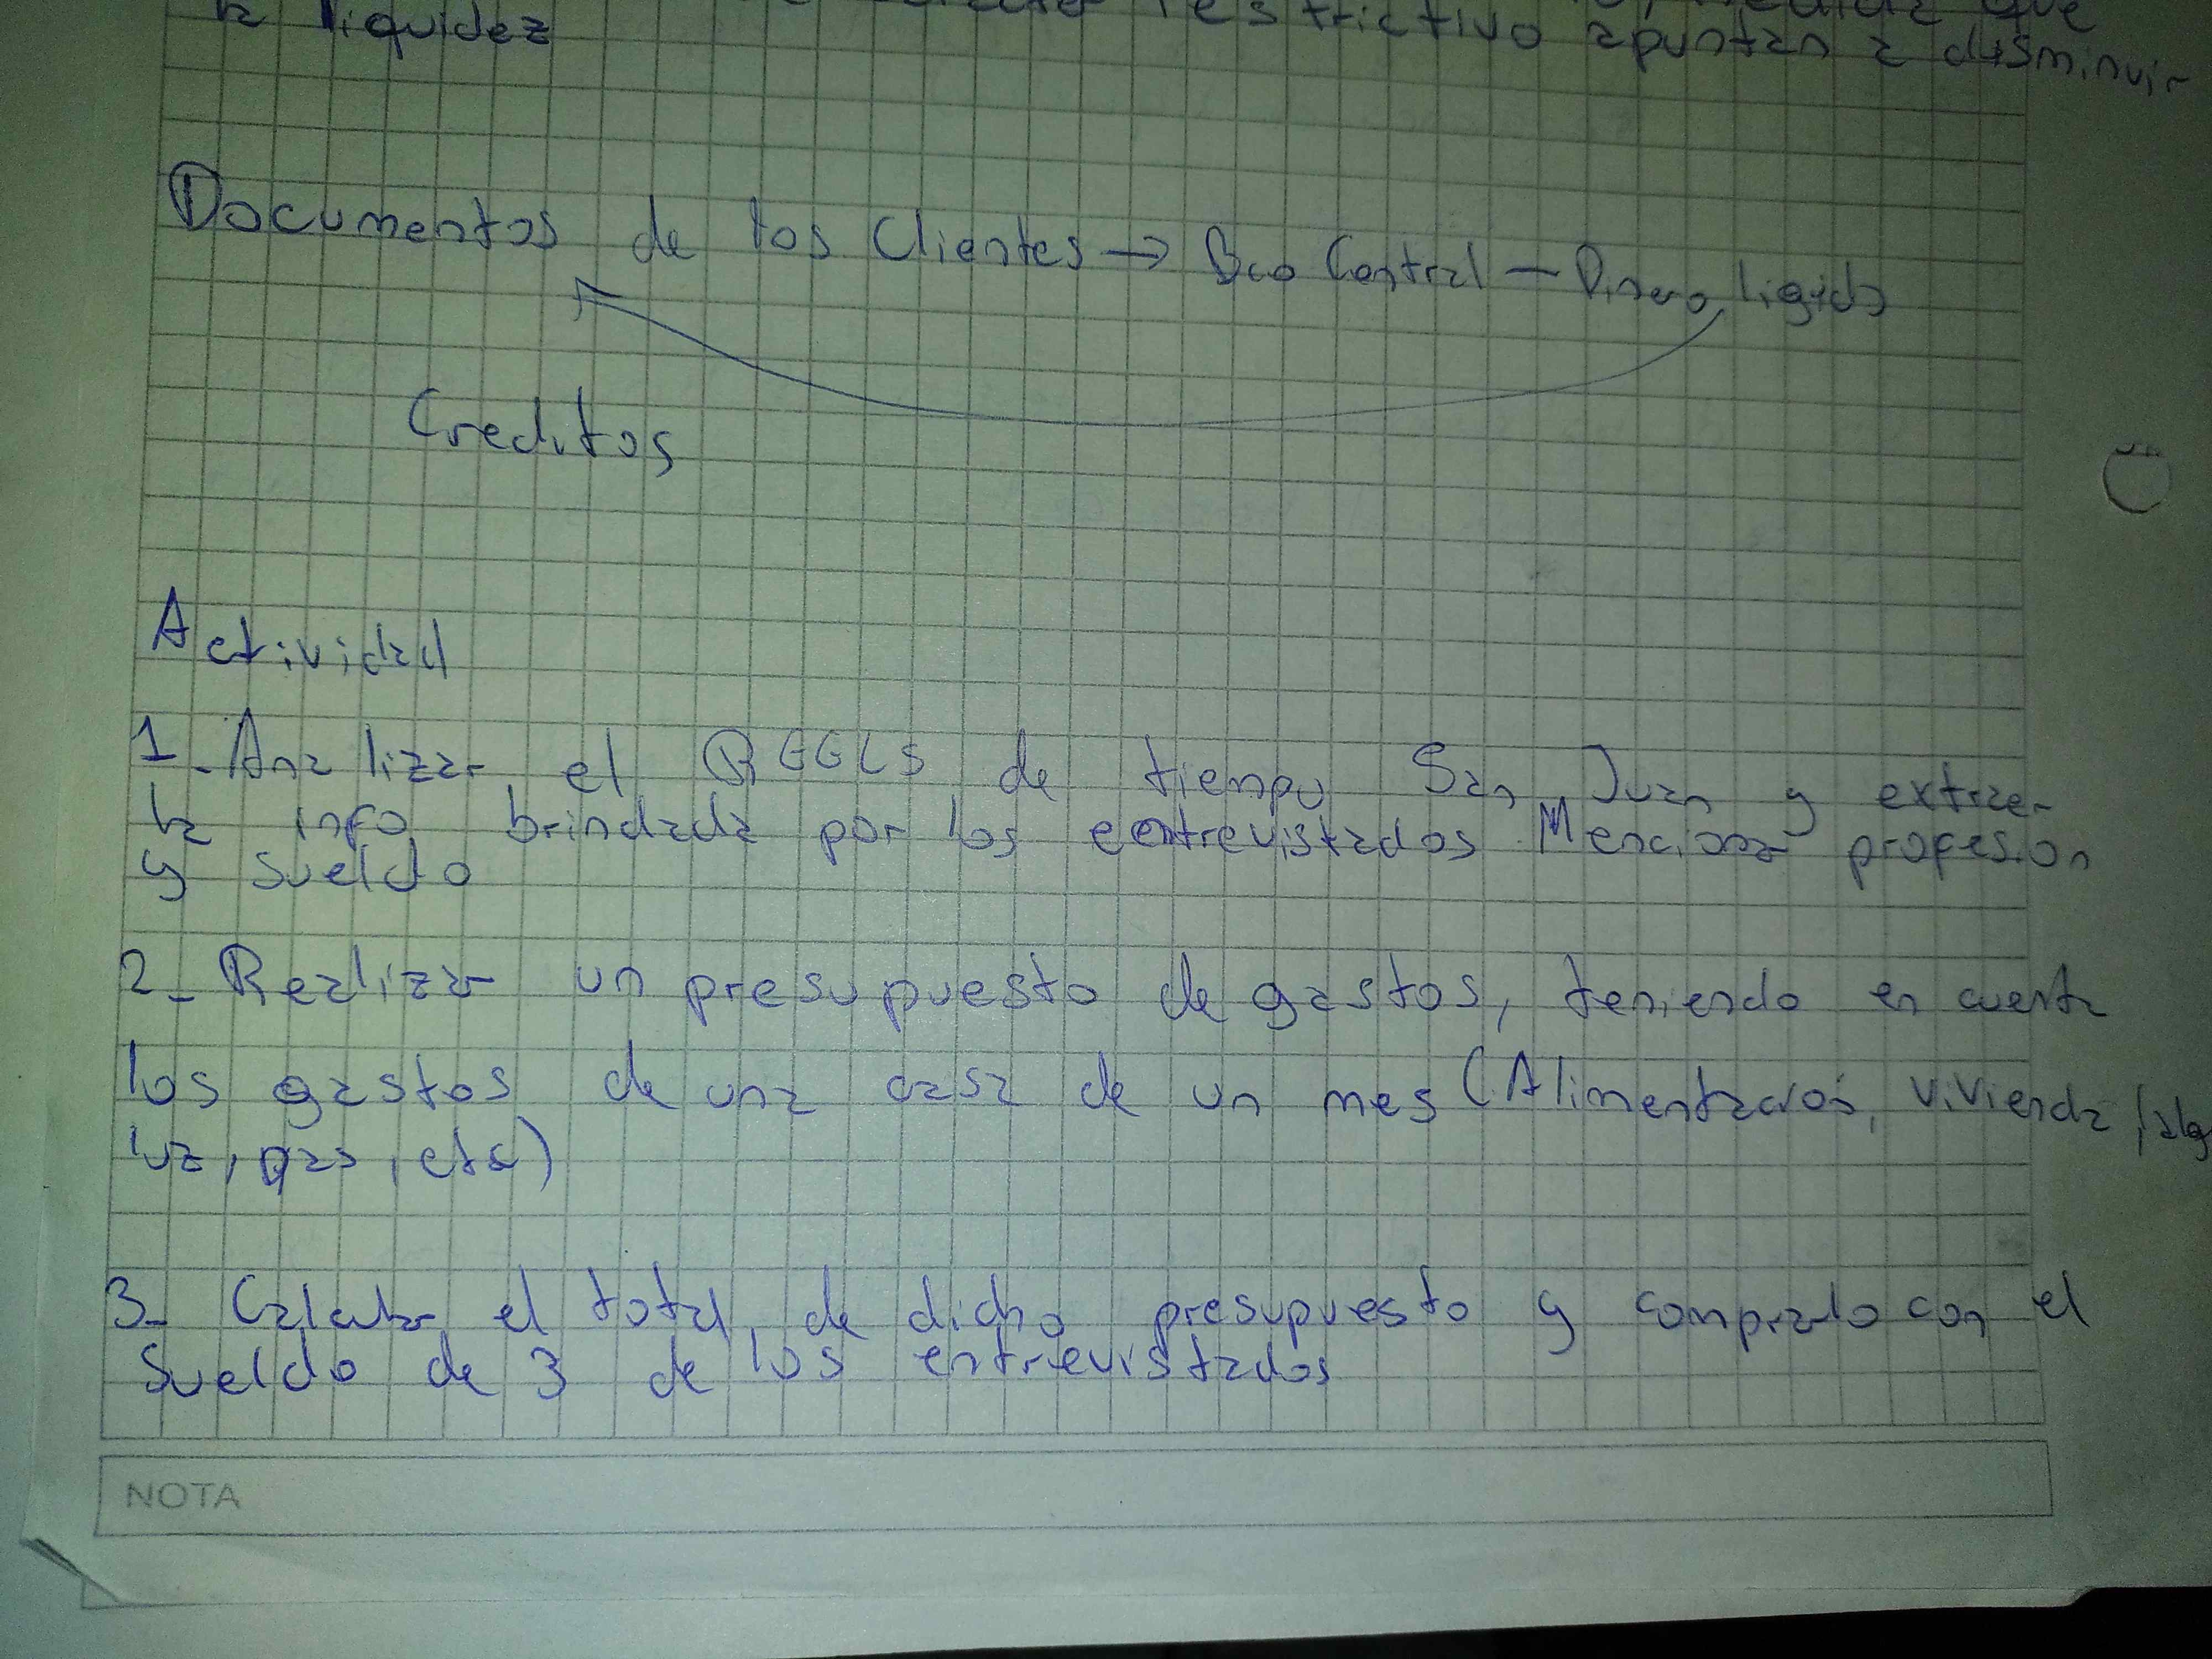 la liquidez
restrictivo apuntan a disminuir
Documentos de los Clientes → Bco Central — Dinero liquido
Creditos
Actividad
1_Analizar el REELS de tiempo San Juan y extraer
la info brindada por los entrevistados. Mencionar profesion
y sueldo
2_ Realizar un presupuesto de gastos, teniendo en cuenta
los gastos de una casa de un mes (Alimentacion, vivienda,
luz, gas, etc)
3_ Calcular el total de dicho presupuesto y compralo con el
sueldo de 3 de los entrevistados
NOTA